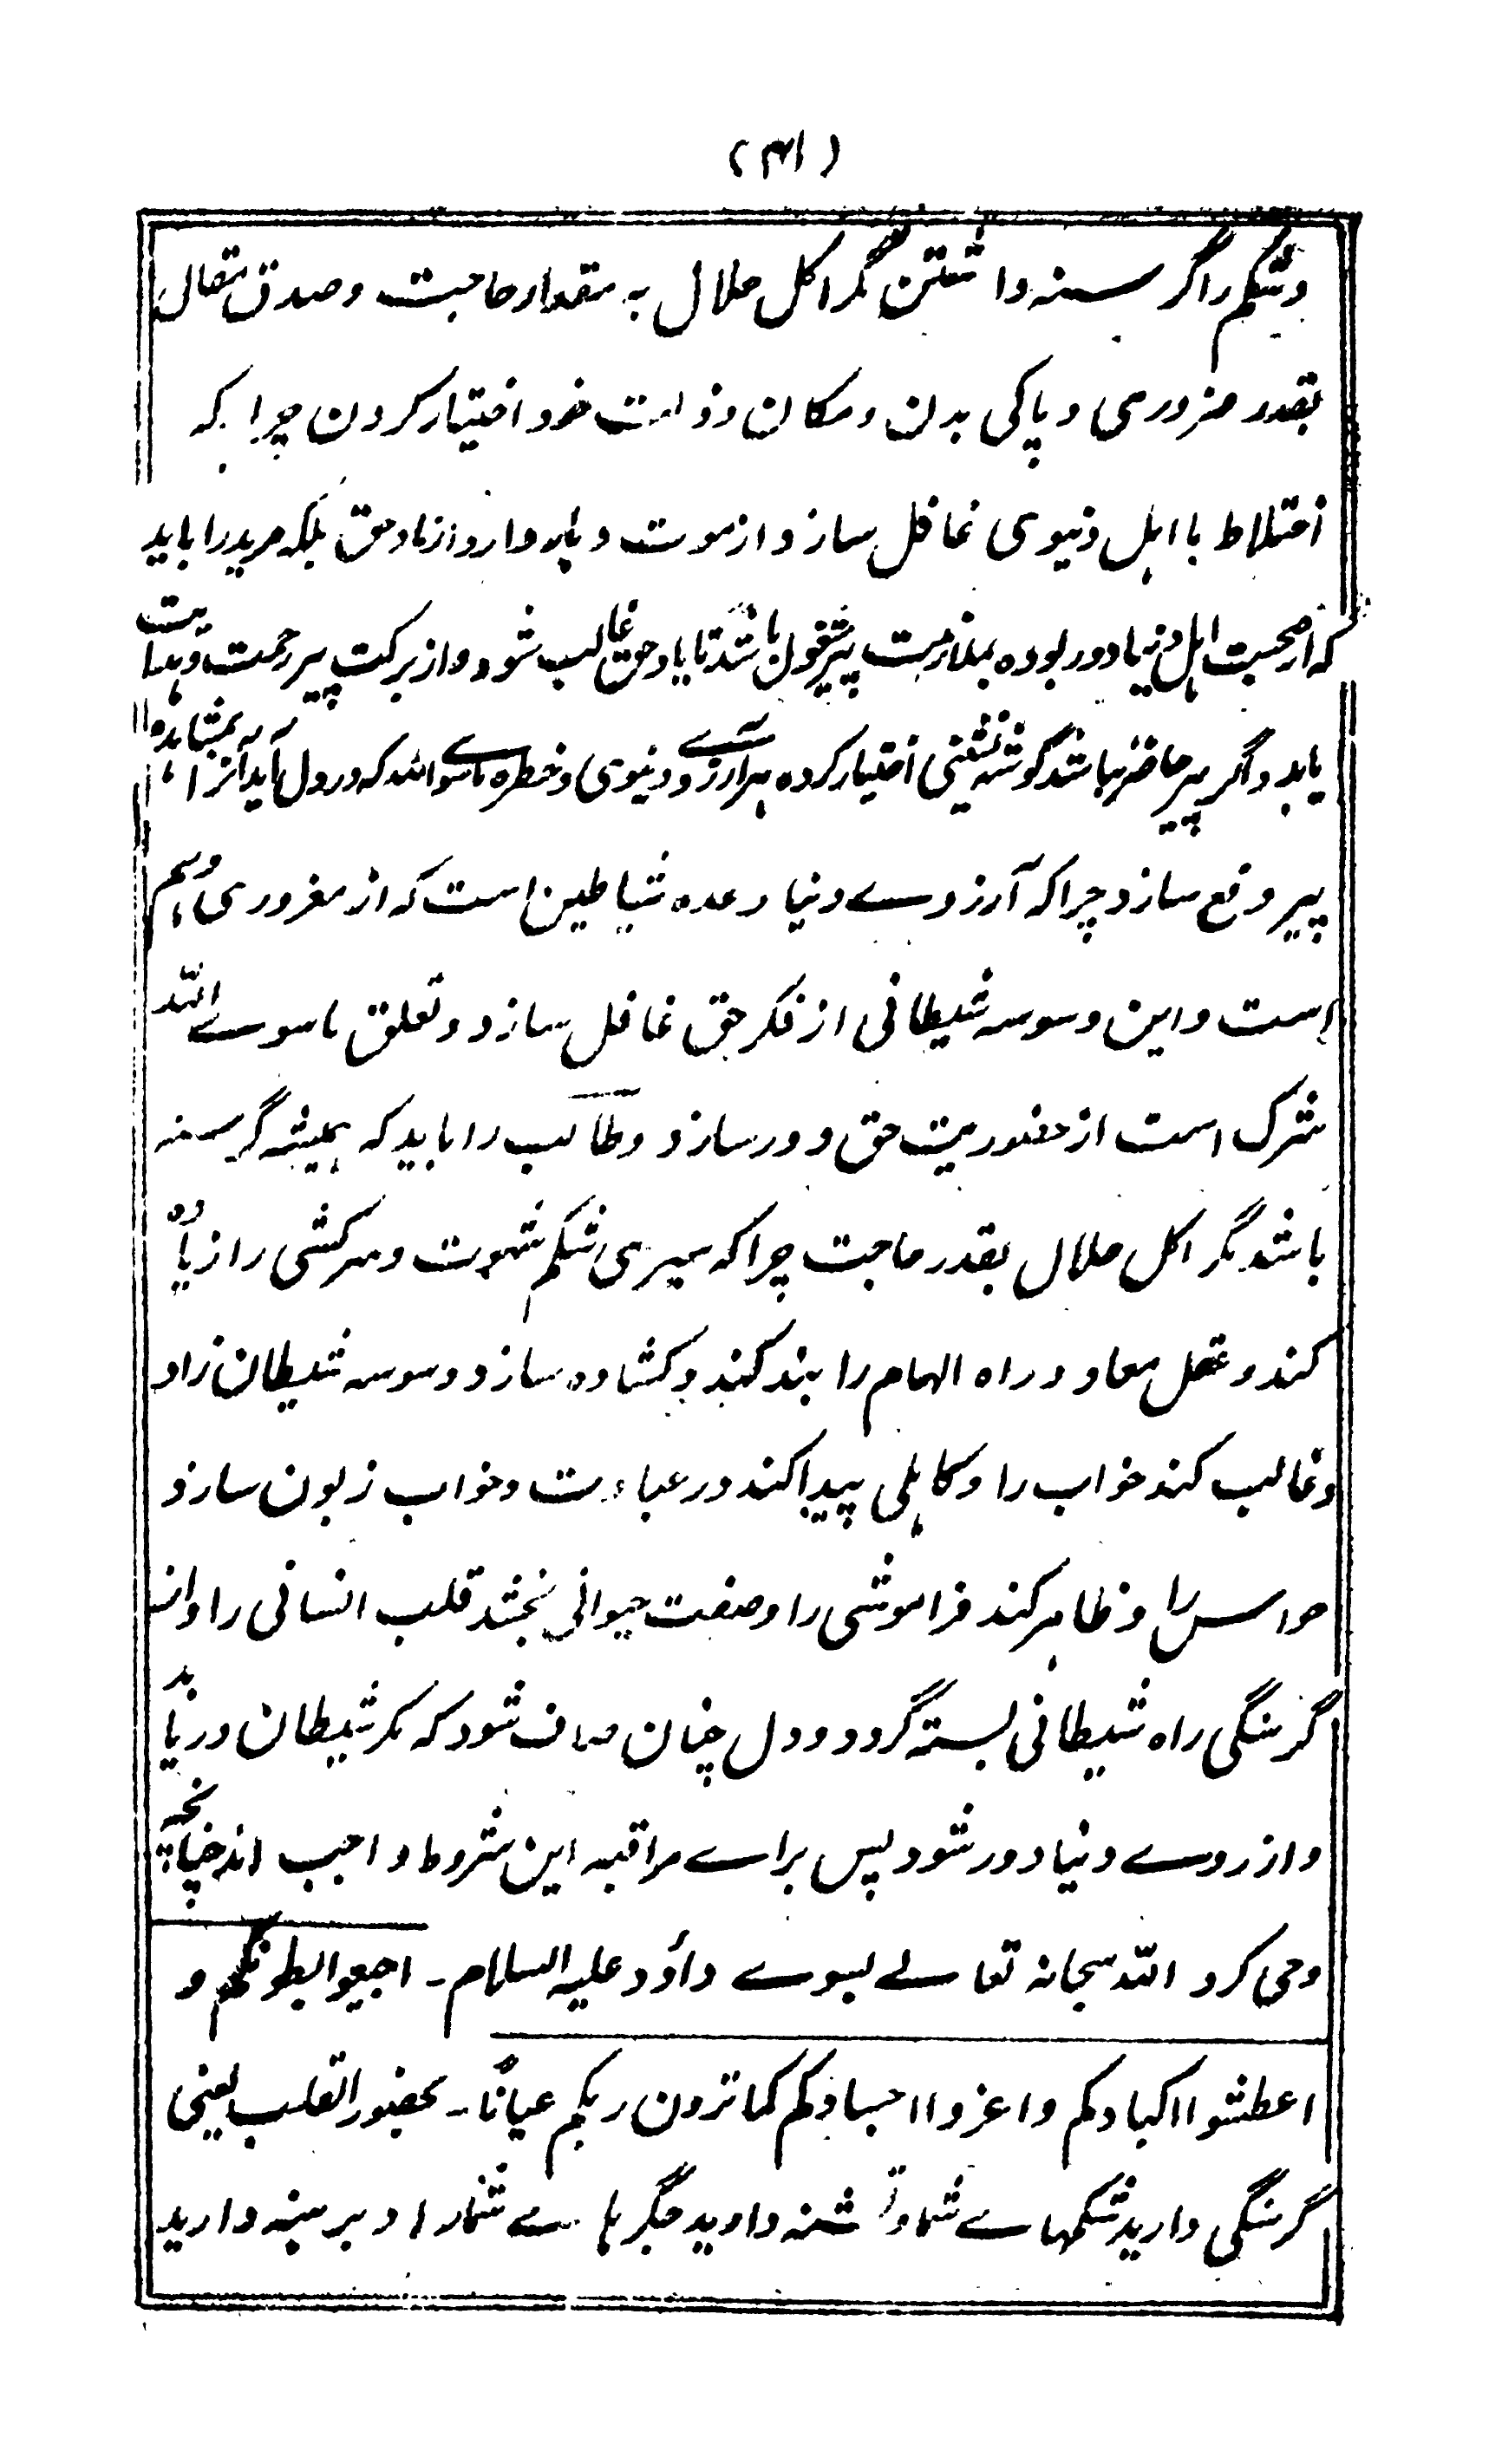 (۴۱)
وشکم را گرسنه داشتن مگر اکل حلال به مقدار حاجت و صدق مقال
بقدر ضروری و پاکی بدن و مکان و ذات خود اختیار کردن چرا که
اختلاط با اهل دنیوی غافل سازد از موت و باز دارد از یاد حق بلکه مرید را باید
که از صحبت اهل دنیا دور بوده بملازمت پیر مشغول باشد تا یاد حق غالب شود و از برکت پیر رحمت و هدایت
یابد و اگر پیر حاضر نباشد گوشه نشینی اختیار کرده هر آرزوے دنیوی و خطره ماسوے الله که در دل آید آنرا بمشاهده
پیر دفع سازد چرا که آرزوے دنیا وعده شیاطین است که از مغروری و سم
است و این وسوسه شیطانی از فکر حق غافل سازد و تعلق ماسوے الله
شرک است از حضوریت حق دور سازد و طالب را باید که همیشه گرسنه
باشد مگر اکل حلال بقدر حاجت چرا که سیری شکم شهوت و سرکشی را زیاده
کند و عقل معاد و راه الهام را بند کند و کشاده سازد وسوسه شیطان زاد
و غالب کند خواب را و کاہلی پیدا کند در عبادت و خواب زبون سازد
حواس را و ظاہر کند فراموشی را و صفت حیوانی بخشد قلب انسانی را و از
گرسنگی راه شیطانی بسته گردد و دل چنان صاف شود که مکر شیطان دریابد
و از روے دنیا دور شود پس براے مراقبه این شروط واجب اند چنانچه
وحی کرد الله سبحانه تعالے بسوے داؤد علیه السلام ۔ اجیعوا بطونکم و
اعطشوا اکبادکم واعزوا اجسادکم کما ترون ربکم عیاناً ۔ بحضور القلب یعنی
گرسنگی دارید شکمهاے شما و تشنه دارید جگر ہاے شما را و برہنه دارید